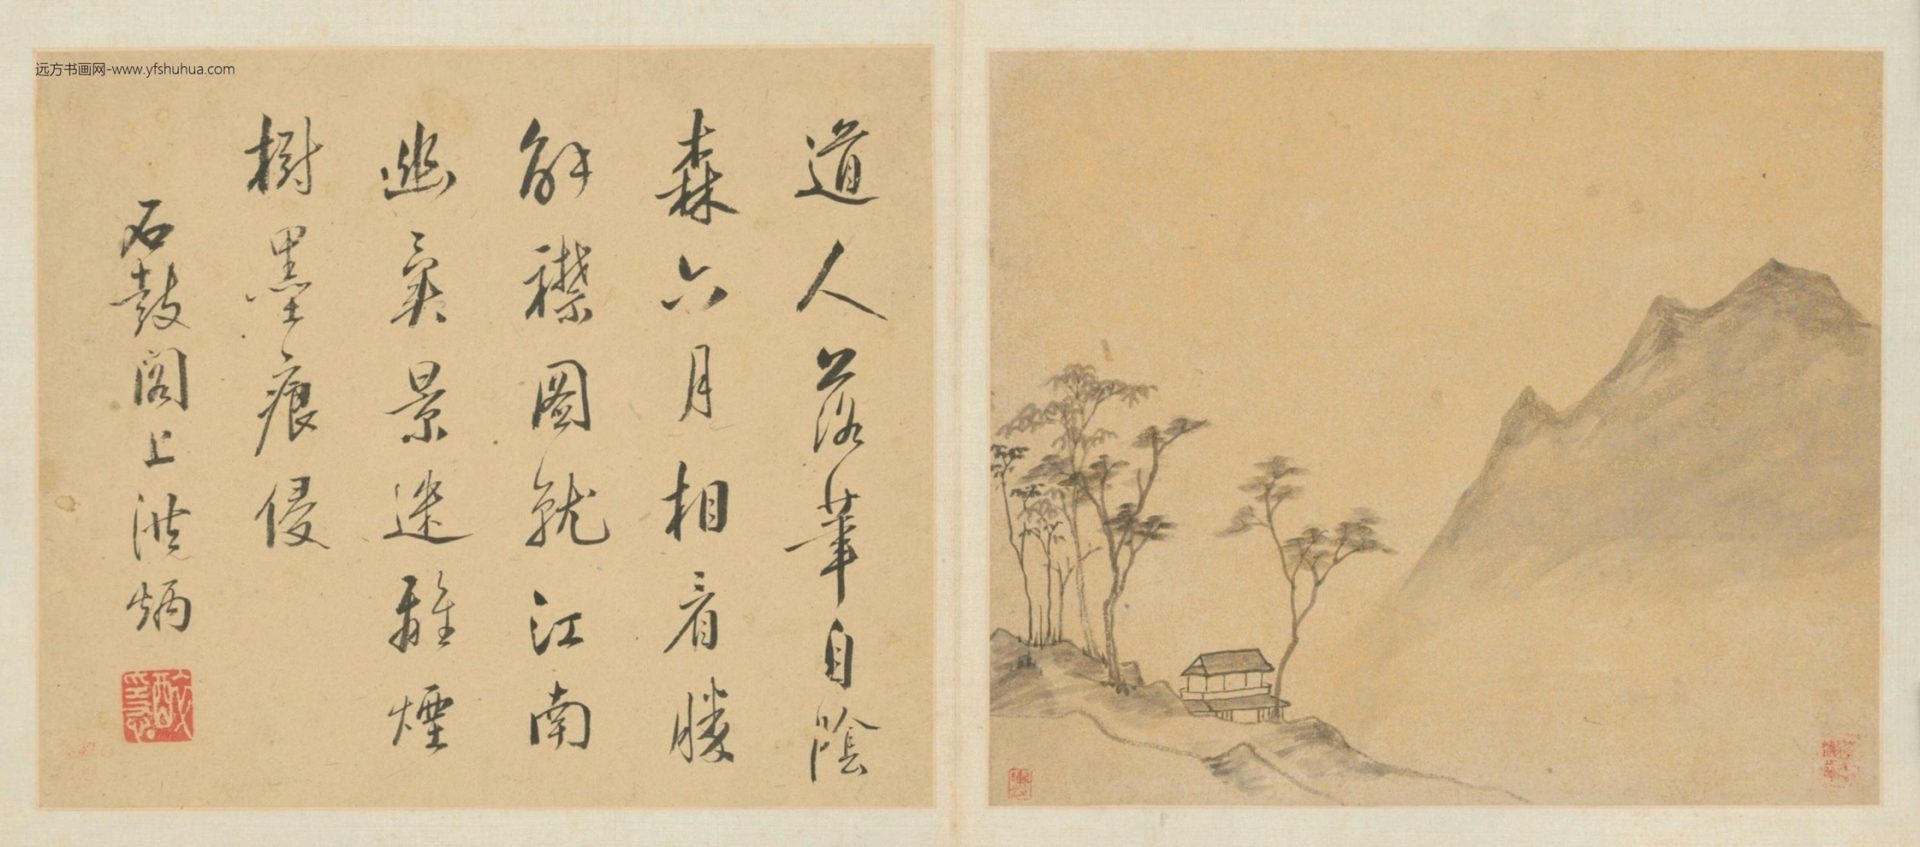 远方书画网-www.yfshuhua.com
道人落筆自陰
森六月相看勝
解襟圖就江南
幽景迷離煙
樹墨痕侵
石鼓閣上洪炳